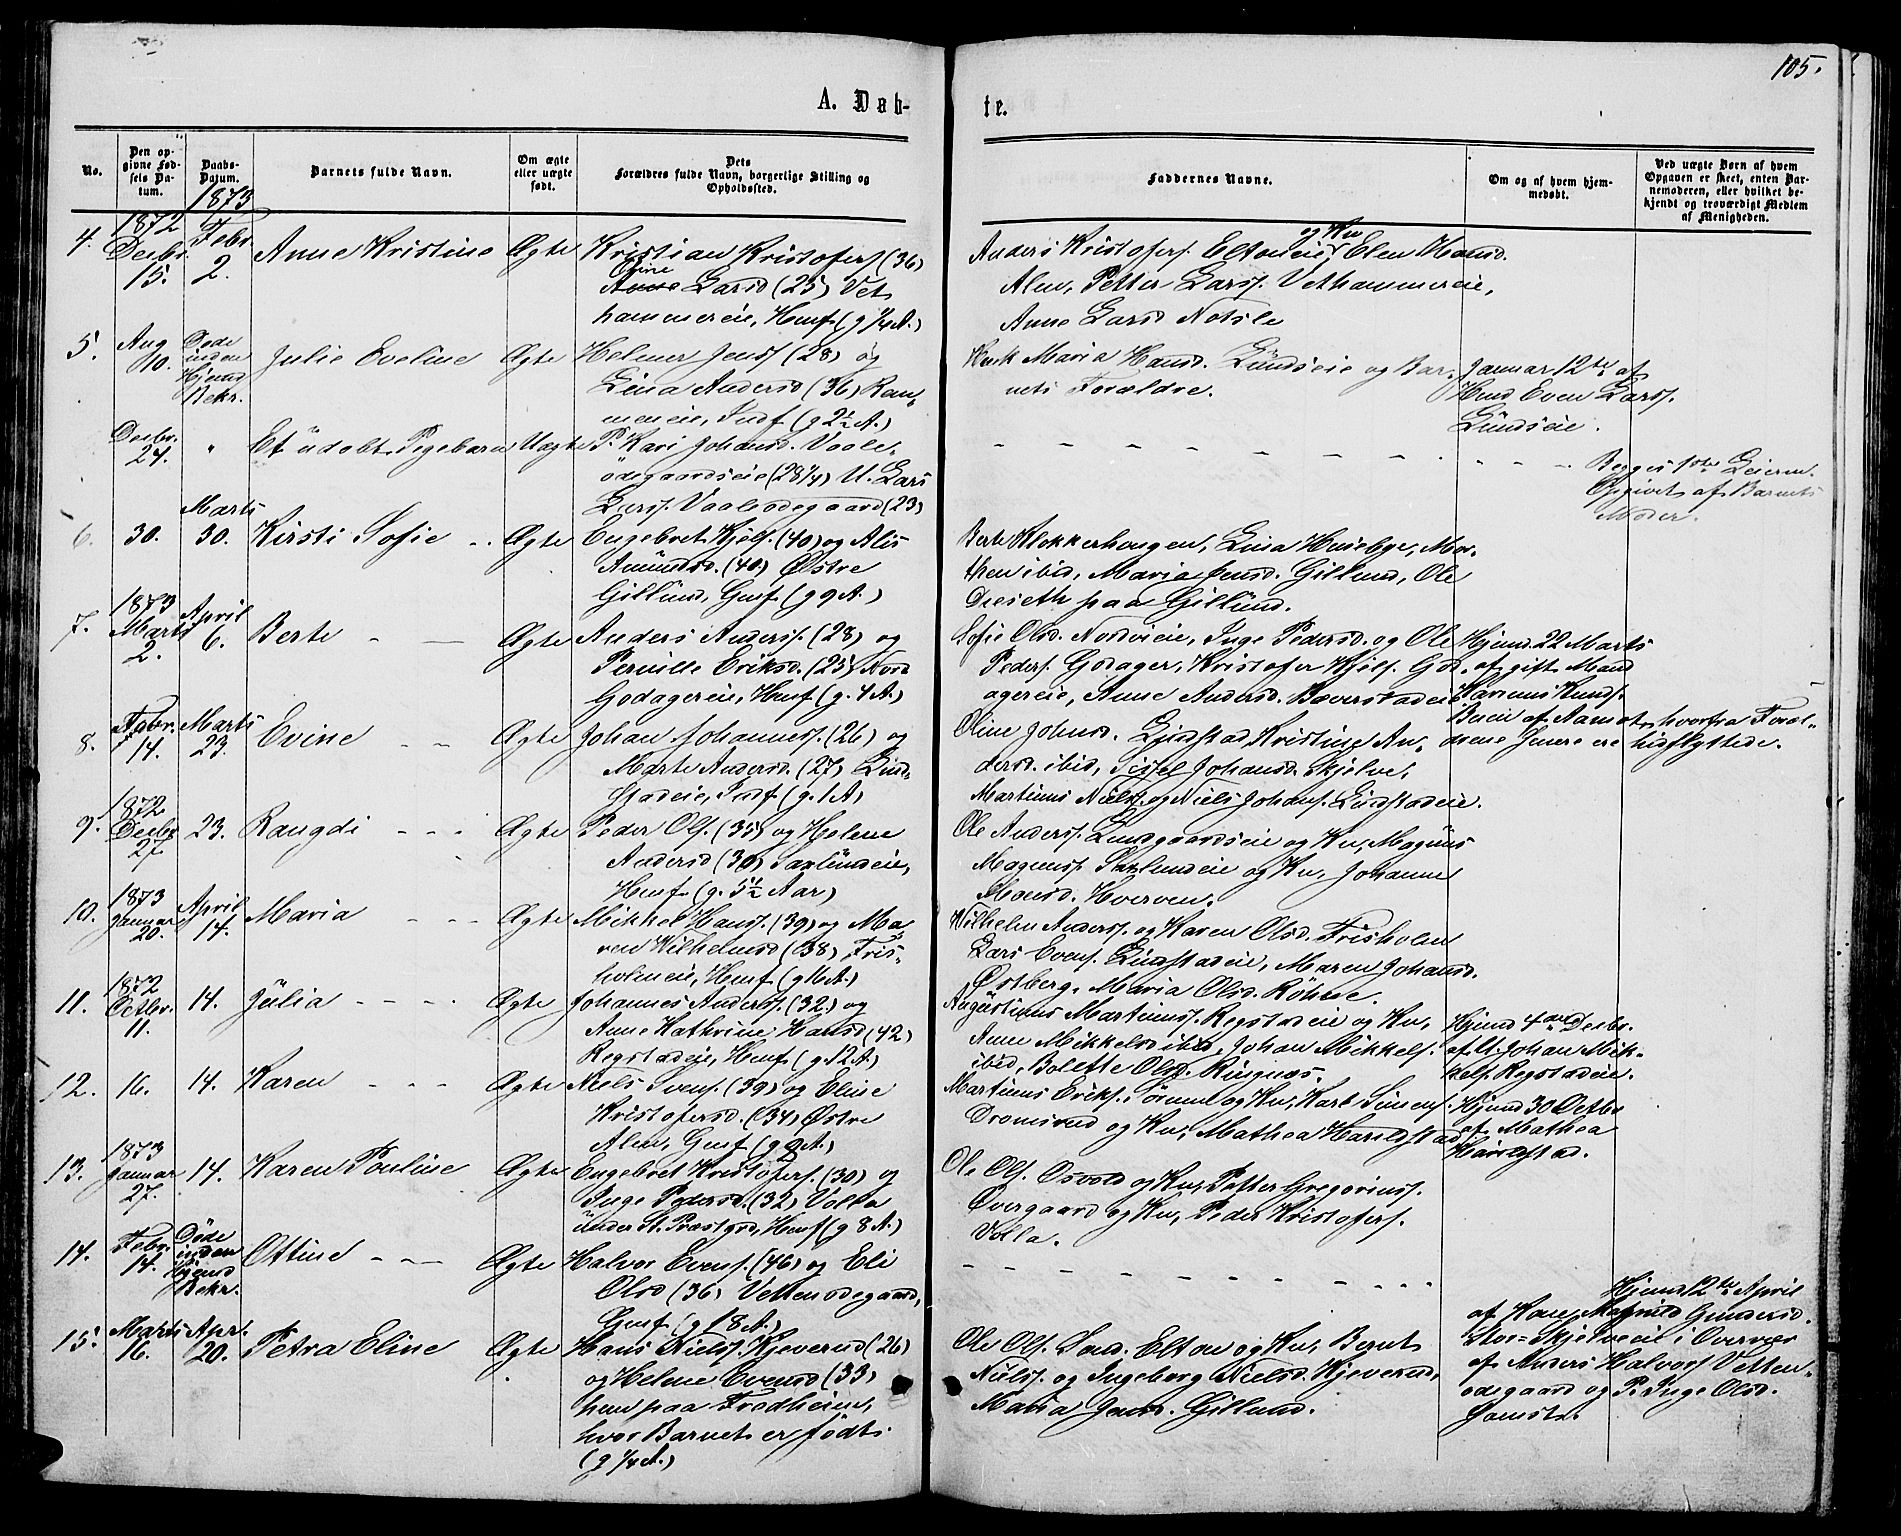 105.
A. Døb-
te.
No.
Den op-
givne Fød-
sels Da-
tum.
Daabs-
Datum.
Barnets fulde Navn.
Om ægte
eller uægte
født.
Dets
Forældres fulde Navn, borgerlige Stilling og
Opholdssted.
Faddernes Navne.
Om og af hvem hjem-
medøbt.
Ved uægte Børn af hvem
Opgaven er skeet, enten Bar-
nemoderen, eller hvilket be-
kjendt og troværdigt Medlem
af Menigheden.
4.
1872
Decbr.
15.
1873
Febr.
2.
Anne Kristine
Ægte
Kristian Kristofers. (36)
Larsd (25) Vet
hammereie, Hemf (g 1/4 A.)
Anders Kristofers. Eltoneie og Ku Elen Hansd.
Alm, Petter Larss. Vethammereie,
Anne Larsd
5.
Aug
10.
Døde
inden
Hjemd
Bekr.
Julie Eveline
Ægte
Helmer Jenss (28) og
Lina Andersd (36)
meneie, (g 2½ A.)
Maria Hansd. Lundseie og Bar-
nets Forældre.
Januar 12te af
Hmd Even Larss.
Lundseie.
Decbr.
24.
"
Et udøbt Pigebarn
Uægte
P. Kari Johansd. Vaale-
ødegaardseie (28¼) U. Lars
Larss. Vaaleødegaard (23)
Begges 1ste Leierm.
Opgivet af Barnets
Moder.
6.
30.
Marts
30.
Kirsti Sofie
Ægte
Engebret Kjøls. (40) og Alis
Amundsd. (40) Østre
Gillund, (g 9 A.)
Berte Klokkerhougen, Lina Huusebye, Mor-
then ibid, Maria Jensd. Gillund, Ole
Dreseth paa Gillund.
7.
1873
Marts
2.
April
6.
Berte
Ægte
Anders Anderss. (28) og
Pernille Eriksd. (25) Nord
Godagereie, Hemf (g. 4 A.)
Sofie Olsd. Nordvieie, Inge Pedersd. og Ole
Peders. Godager, Kristofer Kjøls. God-
agereie, Anne Andersd. Bæverstadeie
Hjemd. 22 Marts
af gift Mand
Karenus Knuds.
Bueie af Aamot, hvorfra Foræl-
drene Jenere ere hidflyttede.
8.
Febr.
14.
Marts
23.
Evine
Ægte
Johan Johanness. (26) og
Marte Andersd. (27) Lund-
stadeie, (g. 1 A)
Oline Johnsd. Lundstad Kristine An-
dersd. ibid, Sissel Johansd. Skjelve,
Martinus Niels. og Niels Johans. Lundstadeie.
9.
1872
Decbr
27.
23.
Rangdi
Ægte
Peder Ols. (35) og Helene
Andersd (30) Saxlundeie,
Hemf (g. 5½ Aar)
Ole Anderss. Lundgaardseie og Ku, Magnus
Magnuss. Saxlundeie og Ku, Johanne
Monsd. Hverven.
10.
1873
Januar
20.
April
14.
Maria
Ægte
Mikkel Hanss. (39) og Ma-
ren Wilhelmsd (38) Fris-
holmeie, Hemf (g 16 A.)
Wilhelm Anderss. og Karen Olsd. Frisholm
Lars Evens. Lundstadeie, Maren Johansd.
Østberg, Maria Olsd. Røhne.
11.
1872
Octbr.
11.
14.
Julia
Ægte
Johannes Anderss. (32) og
Anne Kathrine Hansd (42)
Regstadeie, Hemf (g. 12. A.)
Augustinus Martinuss. Regstadeie og Ku,
Anne Mikkelsd ibid, Johan Mikkels.
ibid, Bolette Olsd. Ringnæs.
Hjemd 4de Decbr.
af U. Johan Mik-
kels. Regstadeie.
12.
16.
14.
Karen
Ægte
Niels Svens. (39) og Eline
Kristofersd. (34) Østre
Alm, (g 9 A.)
Martinus Eriks. Sørum og Ku, Karl Simens.
Dromsrud og Ku, Mathea Harildstad
Hjemd 30 Octbr
af Mathea
Harildstad.
13.
1873
Januar
27.
14.
Karen Pouline
Ægte
Engebret Kristofers. (30) og
Inge Pedersd. (32) Volla
under St. Præstgrd, Hemf (g 8 A.)
Ole Ols. Osvold og Ku, Petter Gregoriuss.
Overgaard og Ku, Peder Kristofers.
Volla.
14.
Febr.
14.
Døde
inden
Hjemd
Bekr.
Ottine
Ægte
Halvor Evens. (46) og Eli
Olsd (36) Vettenødegaard,
(g 18 A.)
Hjemd 12te April
af Kone Magnild Gundersd.
Stor-Skjelveeie i Overvær
af Anders Halvors Vetten-
ødegaard og P. Inge Olsd.
15.
Marts
16.
Apr.
20.
Petra Eline
Ægte
Hans Nielss. Kjeverud (26)
og Helene Evensd (33)
hun paa Fredheim,
hvor Barnet er født.
(g 1/4 A.)
Ole Ols. Elton og Ku, Bernt
Nielss. og Ingeborg Nielsd. Kjeverud,
Maria Jensd. Gillund.